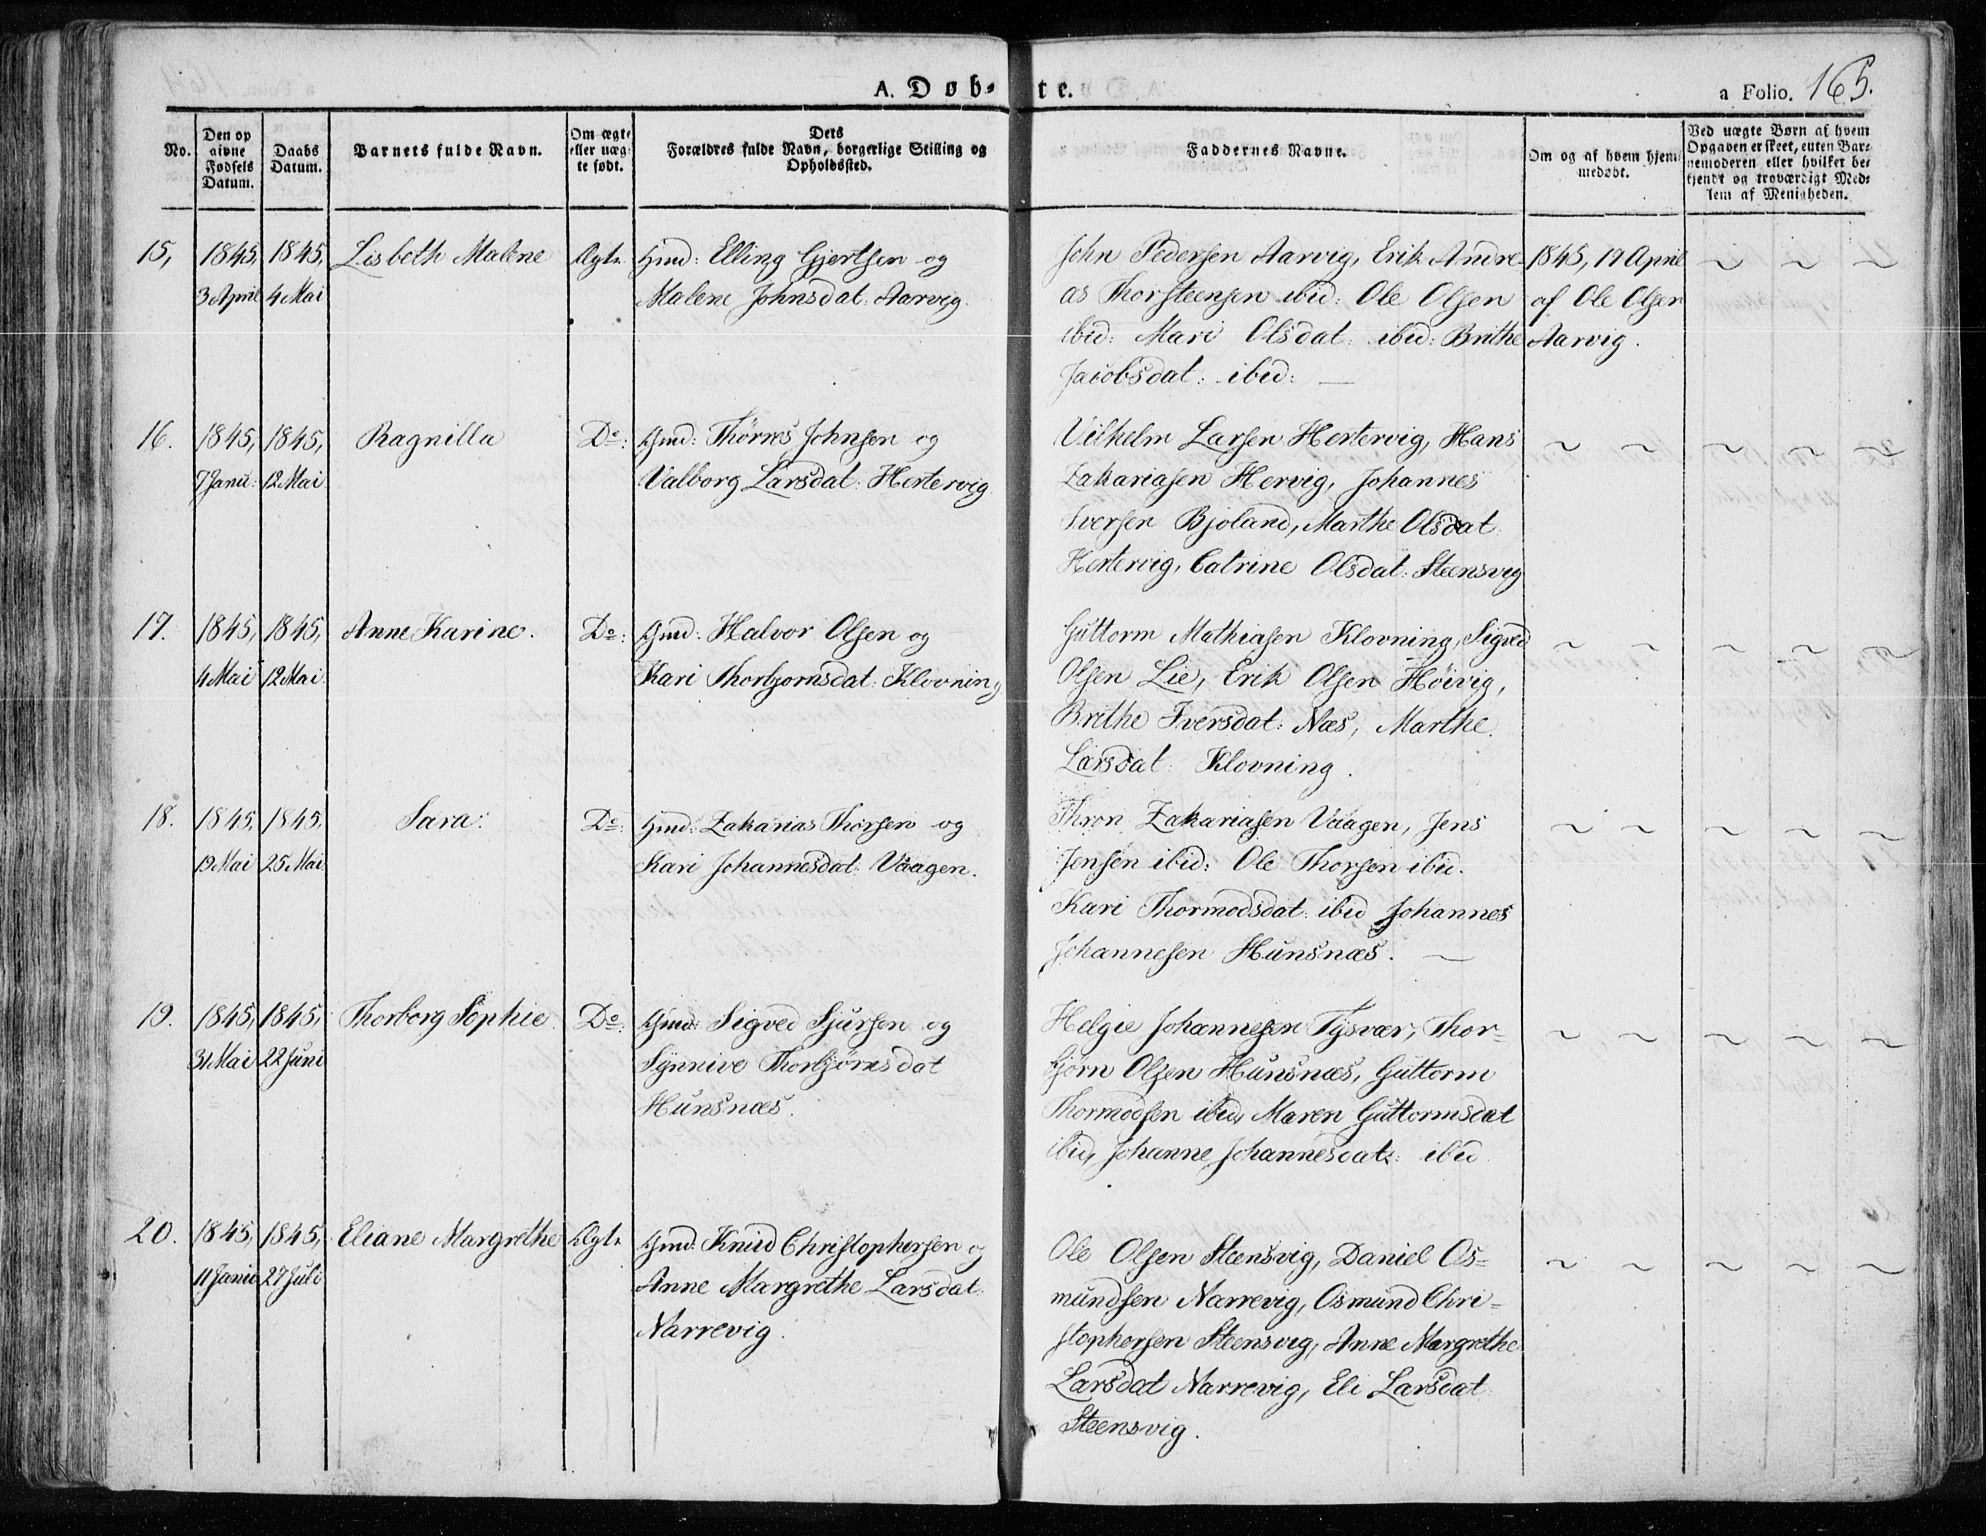 A. Døb-te.
a Folio. 165.
No.
Den op
givne
Fødsels
Datum.
Daabs
Datum.
Barnets fulde Navn.
Om ægte
eller uæg-
te født.
Dets
Forældres fulde Navn, borgerlige Stilling og
Opholdssted.
Faddernes Navne.
Om og af hvem hjem-
medøbt.
Ved uægte Børn af hvem
Opgaven er skeet, enten Bar-
nemoderen eller hvilket be-
kjendt og troværdigt Med-
lem af Menigheden.
15,
1845,
3 April
1845,
4 Mai
Lisbeth Malene
Ægte
Gmd: Elling Gjertsen og
Malene Johnsdat: Aarvig.
John Pedersen Aarvig, Erik Andre-
as Thorsteensen ibid: Ole Olsen
ibid: Mari Olsdat: ibid: Brithe
Jacobsdat: ibid: —
1845, 19 April
af Ole Olsen
Aarvig.
16.
1845,
7 Janu:
1845,
12 Mai
Ragnilla
Do:
Gmd: Thørres Johnsen og
Valborg Larsdat: Hertervig
Vilhelm Larsen Hertervig, Hans
Zakariasen Hervig, Johannes
Iversen Bjoland, Marthe Olsdat
Hertervig, Catrine Olsdat: Steensvig
17.
1845,
4 Mai
1845,
12 Mai
Anne Karine.
Do:
Gmd: Halvor Olsen og
Kari Thorbjornsdat: Klovning
Guttorm Mathiasen Klovning, Sigved
Olsen Lie, Erik Olsen Høivig,
Brithe Iversdat: Næs, Marthe
Larsdat: Klovning.
18.
1845,
19 Mai
1845,
25 Mai
Sara.
Do:
Gmd: Zakarias Thorsen og
Kari Johannesdat: Vaagen.
Thron Zakariasen Vaagen, Jens
Jensen ibid: Ole Thorsen ibid.
Kari Thormodsdat: ibid Johannes
Johannesen Hunsnæs. —
19.
1845,
31 Mai
1845,
22 Juni
Thorborg Sophie
Do:
Gmd: Sigved Sjursen og
Synnive Thorbjørnsdat
Hunsnæs.
Helgie Johannesen Tysvær, Thor-
bjørn Olsen Hunsnæs, Guttorm
Thormodsen ibid, Maren Guttormsdat
ibid, Johanne Johannesdat: ibid
20.
1845,
11 Janu
1845,
27 Juli
Eliane Margrethe
Ægte
Gmd: Knud Christophersen og
Anne Margrethe Larsdat:
Narrevig.
Ole Olsen Steensvig, Daniel Os-
mundsen Narrevig, Osmund Chri-
stophersen Steensvig, Anne Margrethe
Larsdat Narrevig, Eli Larsdat
Steensvig.